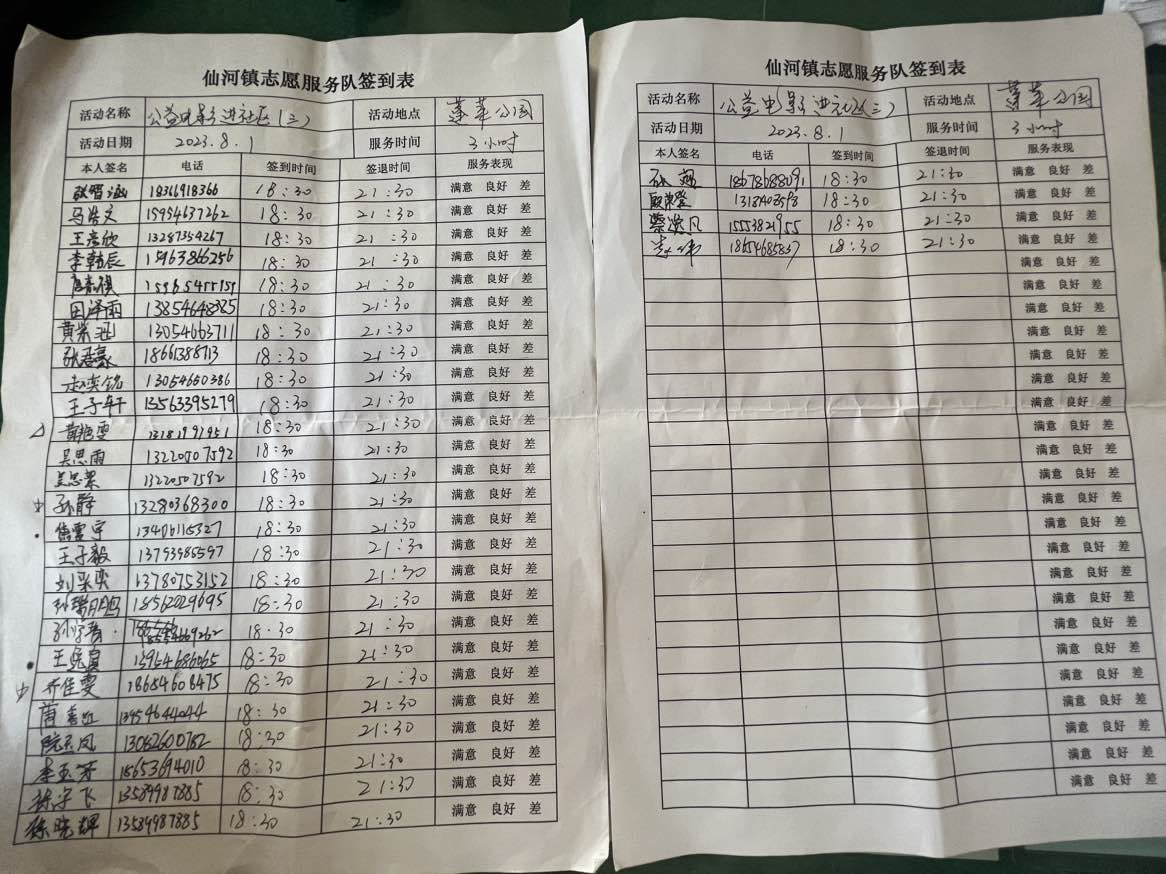 仙河镇志愿服务队签到表
活动名称 公益电影进社区(三) 活动地点 蓬莱公园
活动日期 2023.8.1 服务时间 3小时
本人签名 电话 签到时间 签退时间 服务表现
18366918366 18:30 21:30 满意 良好 差
马浩文 15954637262 18:30 21:30 满意 良好 差
王彦欣 13287354267 18:30 21:30 满意 良好 差
李韩辰 15963866256 18:30 21:30 满意 良好 差
18:30 21:30 满意 良好 差
田泽雨 13854648385 18:30 21:30 满意 良好 差
13054663711 18:30 21:30 满意 良好 差
18661388713 18:30 21:30 满意 良好 差
13054660386 18:30 21:30 满意 良好 差
王子轩 15563395279 18:30 21:30 满意 良好 差
黄艳雯 13181991951 18:30 21:30 满意 良好 差
吴思雨 13220507592 18:30 21:30 满意 良好 差
吴思齐 13220507592 18:30 21:30 满意 良好 差
孙静 13280368300 18:30 21:30 满意 良好 差
13406115327 18:30 21:30 满意 良好 差
王子毅 13793985597 18:30 21:30 满意 良好 差
刘采奕 13780753152 18:30 21:30 满意 良好 差
孙瑞鹏 18562029695 18:30 21:30 满意 良好 差
18554669262 18:30 21:30 满意 良好 差
13954686065 18:30 21:30 满意 良好 差
乔佳雯 18654608475 18:30 21:30 满意 良好 差
13954644044 18:30 21:30 满意 良好 差
阮玉凤 13082600782 18:30 21:30 满意 良好 差
18653694010 18:30 21:30 满意 良好 差
徐宇飞 13589987885 18:30 21:30 满意 良好 差
徐晓辉 13589987885 18:30 21:30 满意 良好 差
仙河镇志愿服务队签到表
活动名称 公益电影进社区(三) 活动地点 蓬莱公园
活动日期 2023.8.1 服务时间 3小时
本人签名 电话 签到时间 签退时间 服务表现
18678688091 18:30 21:30 满意 良好 差
18:30 21:30 满意 良好 差
蔡洪凡 15553821955 18:30 21:30 满意 良好 差
18654685837 18:30 21:30 满意 良好 差
满意 良好 差
满意 良好 差
满意 良好 差
满意 良好 差
满意 良好 差
满意 良好 差
满意 良好 差
满意 良好 差
满意 良好 差
满意 良好 差
满意 良好 差
满意 良好 差
满意 良好 差
满意 良好 差
满意 良好 差
满意 良好 差
满意 良好 差
满意 良好 差
满意 良好 差
满意 良好 差
满意 良好 差
满意 良好 差